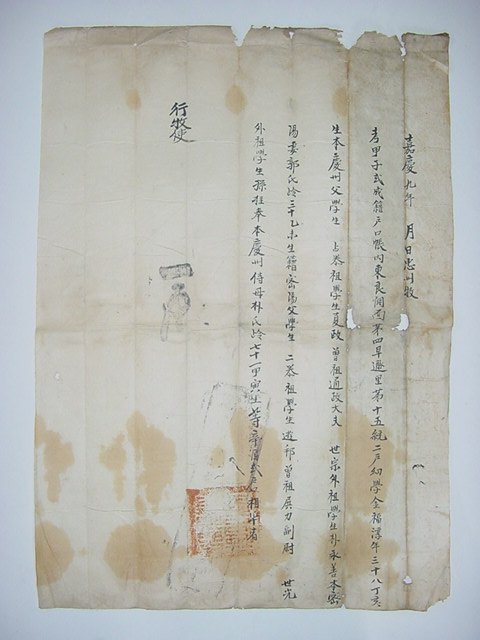 嘉慶九年 月 日忠州牧
考甲子式成籍戶口帳內東良面第四旱遯里第十五統二戶幼學金福淳年三十八丁亥
生本慶州父學生 占恭祖學生夏政曾祖通政大夫 世宗外祖學生朴永善本密
陽妻郭氏齡三十乙未生籍密陽父學生 二恭祖學生遊邦曾祖展力副尉 世光
外祖學生孫柱奉本慶州侍母朴氏齡七十一甲寅生等辛酉戶口相準者
行牧使